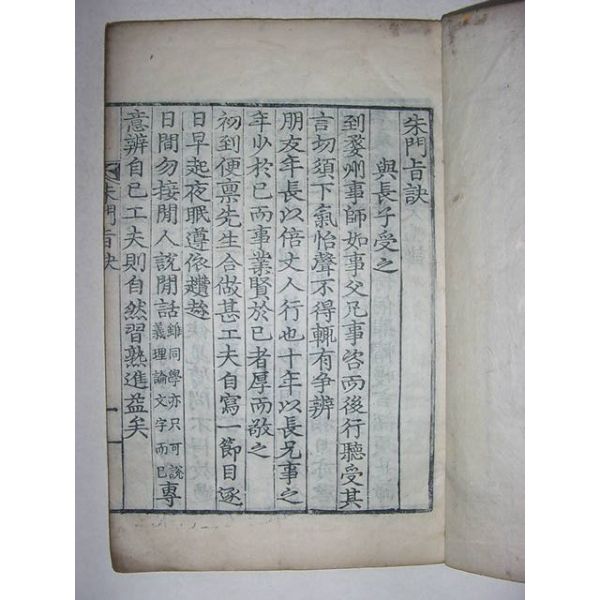 朱門旨訣
與長子受之
到婺州事師如事父兄事咨而後行聽受其
言切須下氣怡聲不得輒有爭辨
朋友年長以倍丈人行也十年以長兄事之
年少於已而事業賢於已者厚而敬之
初到便稟先生合做甚工夫自寫一節目逐
日早起夜眠遵依趲趁
日間勿接閒人說閒話雖同學亦只可說義理論文字而已專
意辨自已工夫則自然習熟進益矣
朱門旨訣
一